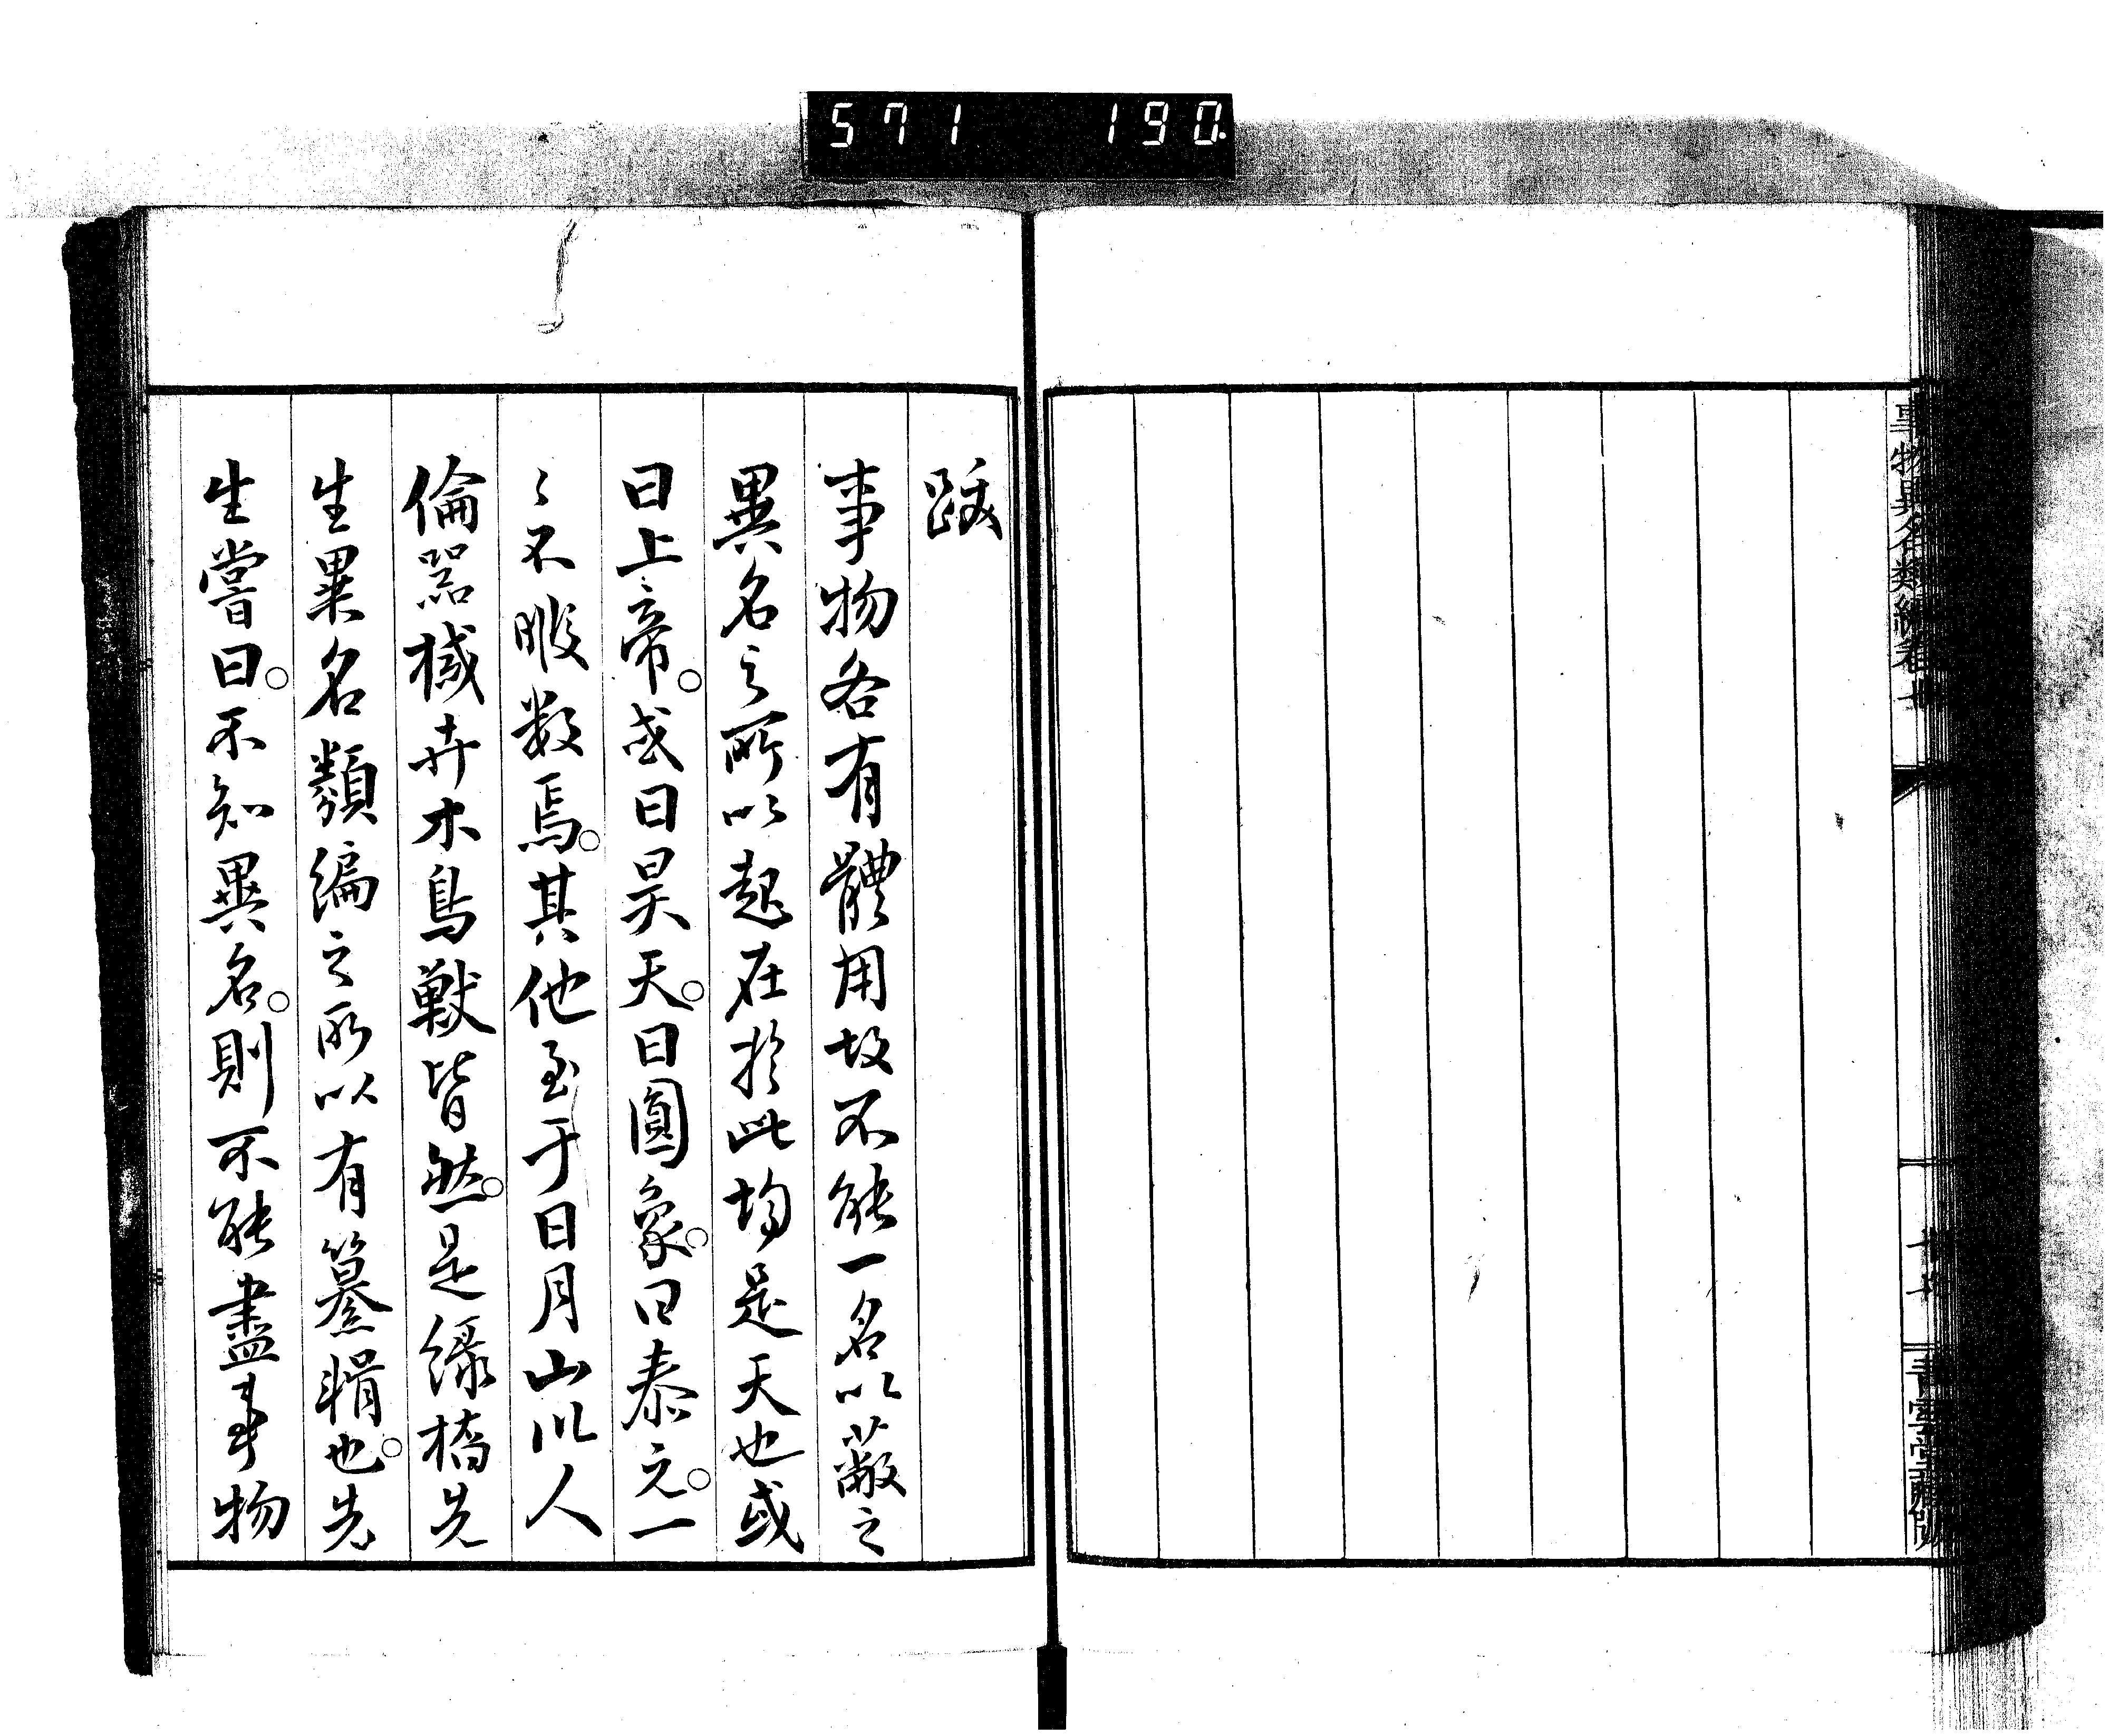 571 190.
事物異名類編卷
青雲堂藏版
跋
事物各有體用故不能一名以蔽之
異名之所以起在於此均是天也或
曰上帝。或曰昊天。曰圓象。曰泰元。一
〻不暇数焉。其他至于日月山川人
倫器械卉木鳥獣皆然。是緑橋先
生異名類編之所以有纂輯也。先
生嘗曰。不知異名。則不能盡事物